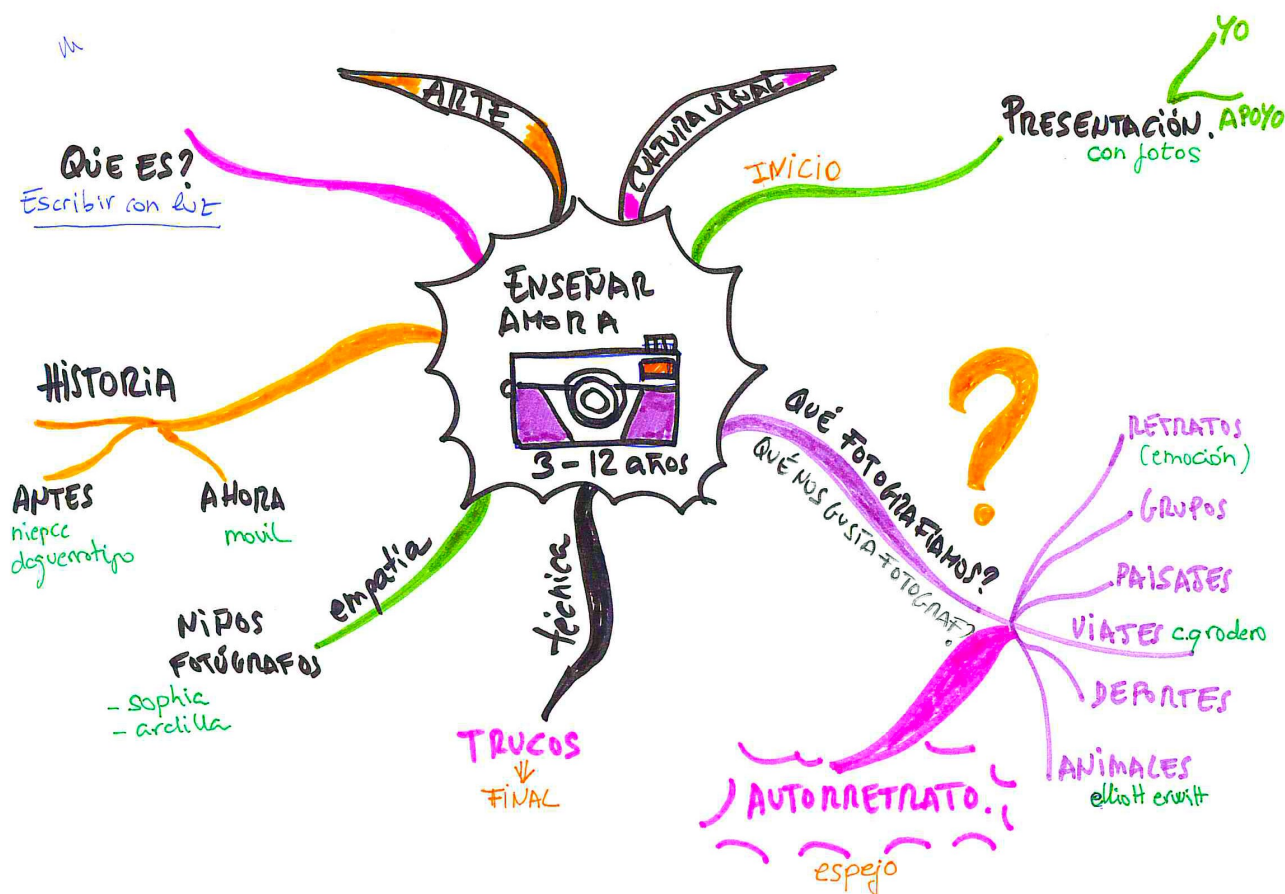 ENSEÑAR
AHORA
3-12 años
ARTE
CULTURA VISUAL
INICIO
PRESENTACIÓN.
con fotos
YO
APOYO
QUÉ ES?
Escribir con luz
HISTORIA
ANTES
niepce
daguerrotipo
AHORA
movil
empatía
NIÑOS
FOTÓGRAFOS
- sophia
- ardilla
técnica
TRUCOS
FINAL
QUÉ FOTOGRAFÍAMOS?
QUÉ NOS GUSTA FOTOGRAF?
?
RETRATOS
(emoción)
GRUPOS
PAISAJES
VIAJES c.grodero
DEPORTES
ANIMALES
elliott erwitt
AUTORRETRATO.
espejo